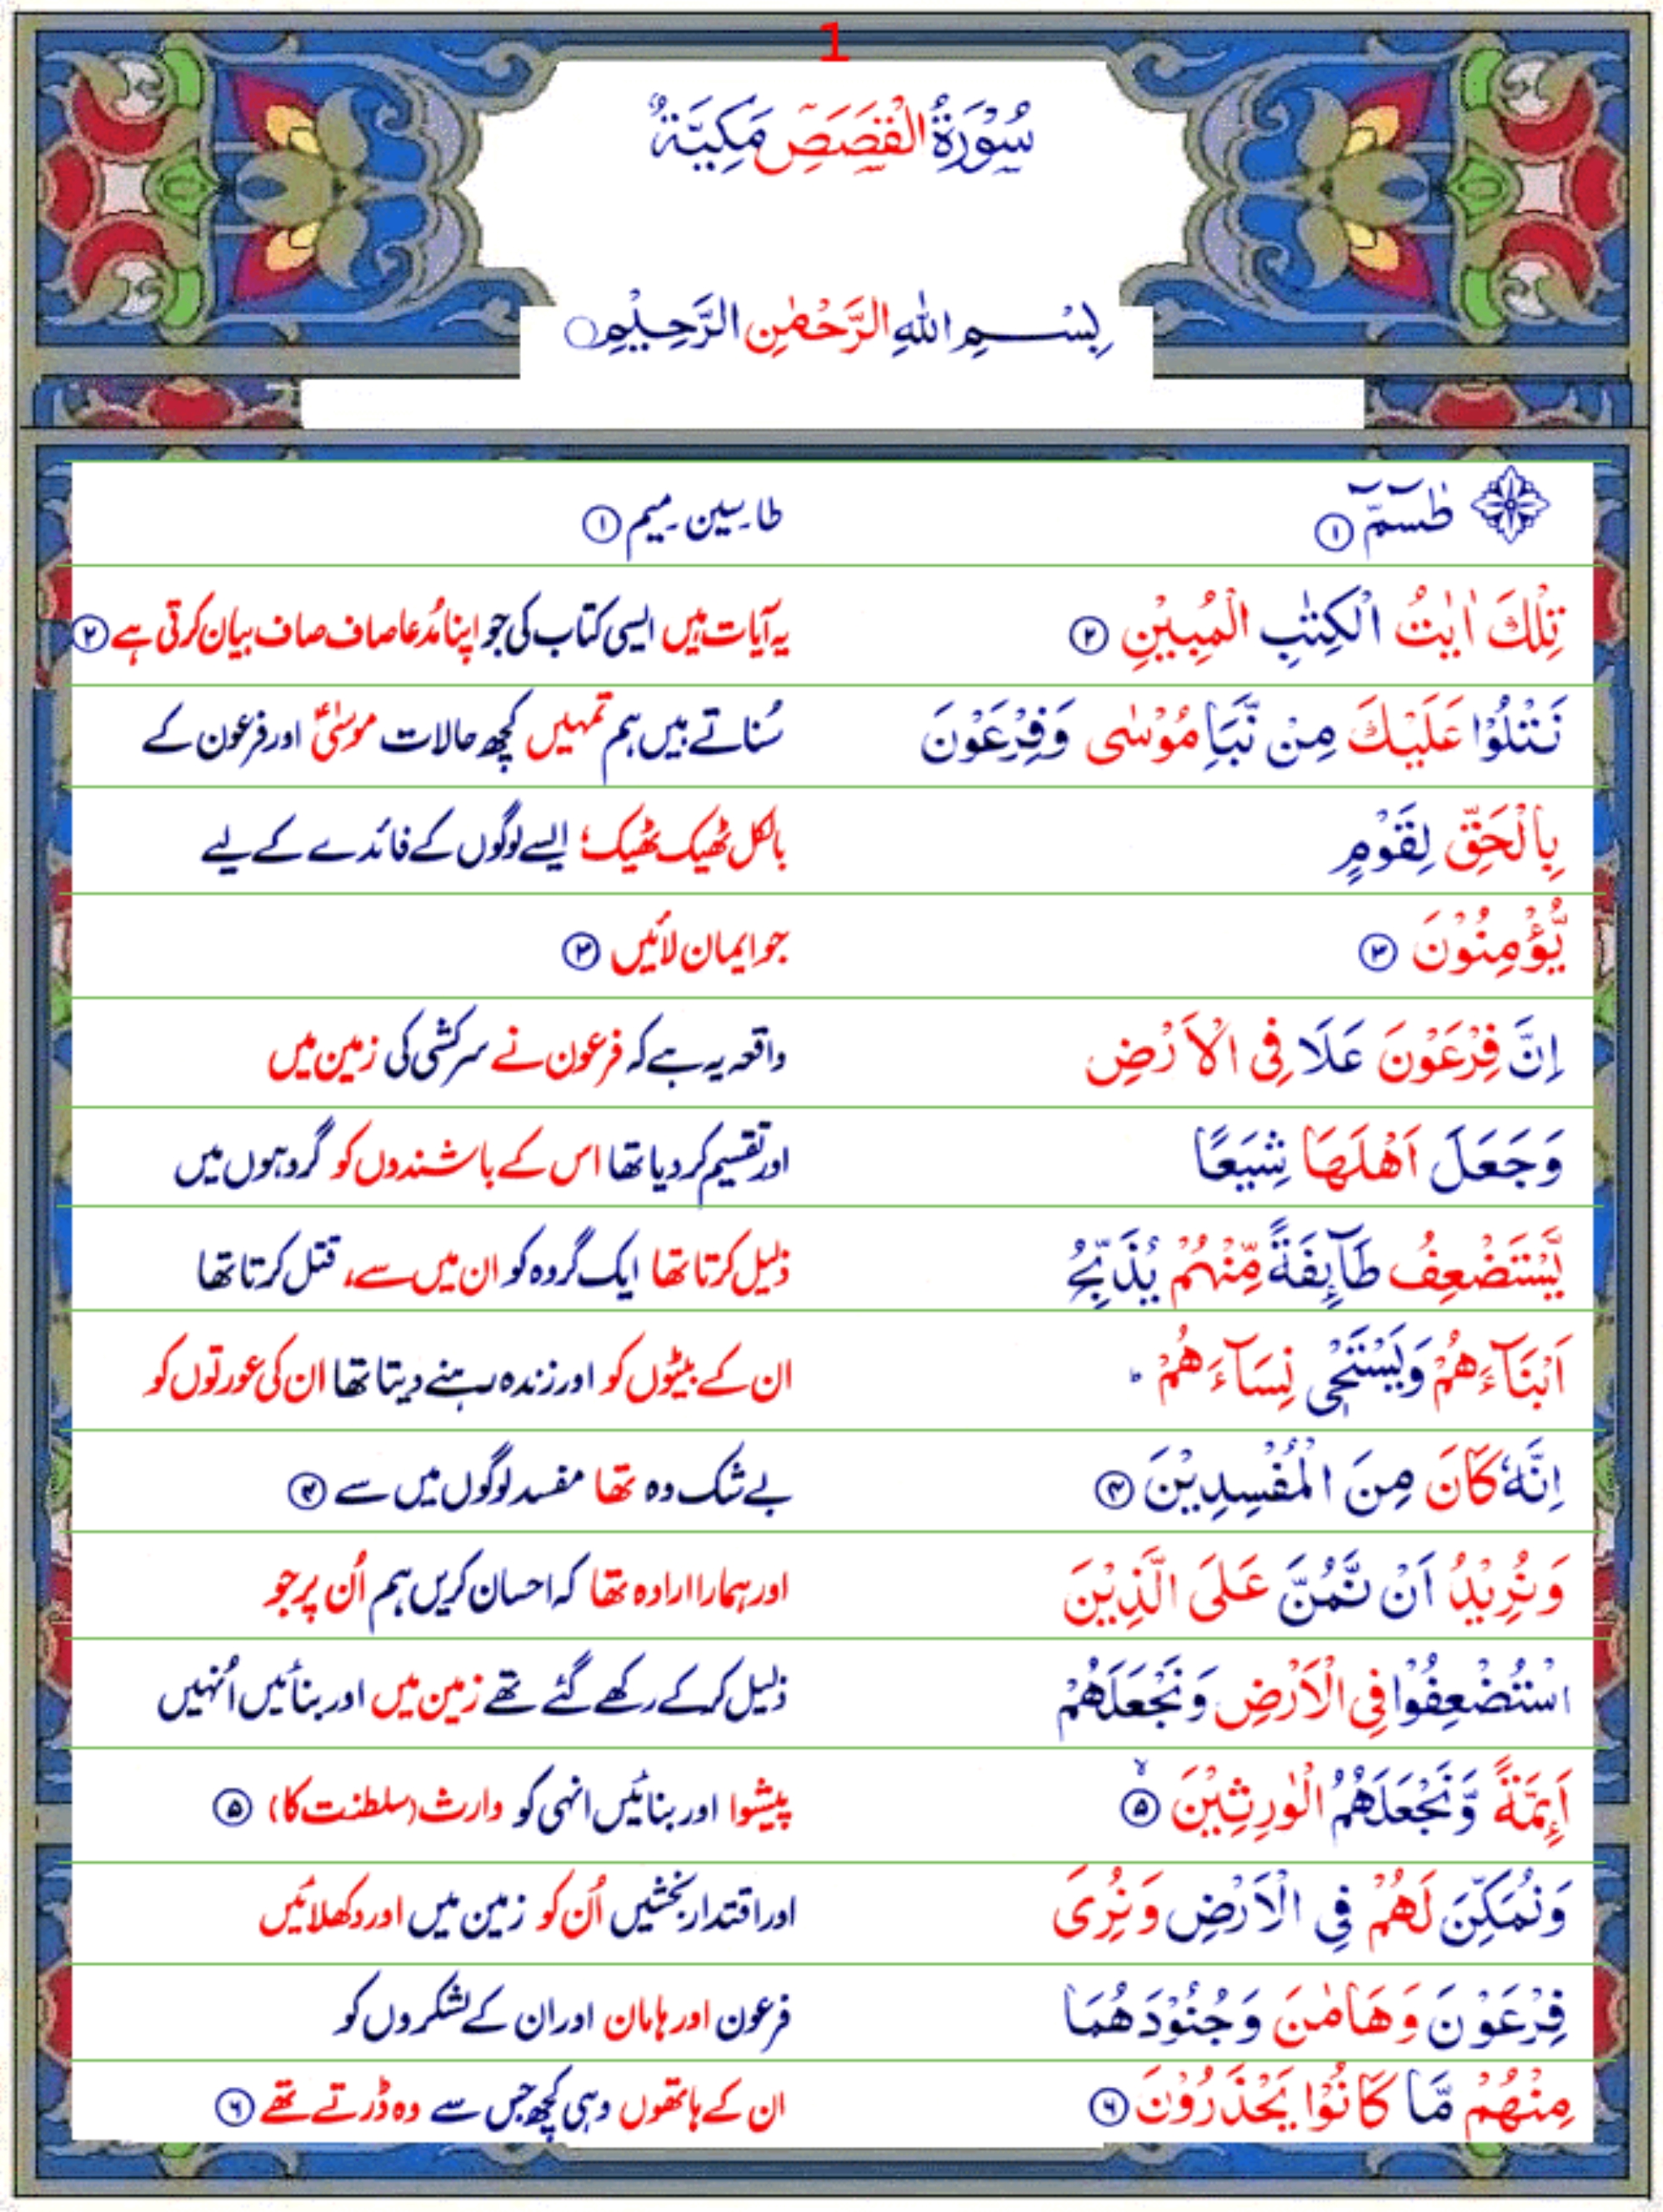 1
سُوْرَةُ الْقَصَصِ مَكِيَّةٌ
بِسْمِ اللّٰهِ الرَّحْمٰنِ الرَّحِيْمِ
طٰسٓمّٓ ۝۱ طا۔سین۔میم ۝۱
تِلْكَ اٰيٰتُ الْكِتٰبِ الْمُبِيْنِ ۝۲ یہ آیات ہیں ایسی کتاب کی جو اپنا مُدعا صاف صاف بیان کرتی ہے ۝۲
نَتْلُوْا عَلَيْكَ مِنْ نَّبَاِ مُوْسٰى وَفِرْعَوْنَ سُناتے ہیں ہم تمہیں کچھ حالات موسیٰؑ اور فرعون کے
بِالْحَقِّ لِقَوْمٍ بالکل ٹھیک ٹھیک، ایسے لوگوں کے فائدے کے لیے
يُّؤْمِنُوْنَ ۝۳ جو ایمان لائیں ۝۳
اِنَّ فِرْعَوْنَ عَلَا فِى الْاَرْضِ واقعہ یہ ہے کہ فرعون نے سرکشی کی زمین میں
وَجَعَلَ اَهْلَهَا شِيَعًا اور تقسیم کر دیا تھا اس کے باشندوں کو گروہوں میں
يَّسْتَضْعِفُ طَآىِٕفَةً مِّنْهُمْ يُذَبِّحُ ذلیل کرتا تھا ایک گروہ کو ان میں سے، قتل کرتا تھا
اَبْنَآءَهُمْ وَيَسْتَحْىٖ نِسَآءَهُمْ ؕ ان کے بیٹوں کو اور زندہ رہنے دیتا تھا ان کی عورتوں کو
اِنَّهٗ كَانَ مِنَ الْمُفْسِدِيْنَ ۝۴ بے شک وہ تھا مفسد لوگوں میں سے ۝۴
وَنُرِيْدُ اَنْ نَّمُنَّ عَلَى الَّذِيْنَ اور ہمارا ارادہ تھا کہ احسان کریں ہم اُن پر جو
اسْتُضْعِفُوْا فِى الْاَرْضِ وَنَجْعَلَهُمْ ذلیل کرکے رکھے گئے تھے زمین میں اور بنائیں اُنہیں
اَىِٕمَّةً وَّنَجْعَلَهُمُ الْوٰرِثِيْنَ ۝۵ۙ پیشوا اور بنائیں انہی کو وارث (سلطنت کا) ۝۵
وَنُمَكِّنَ لَهُمْ فِى الْاَرْضِ وَنُرِىَ اور اقتدار بخشیں اُن کو زمین میں اور دکھلائیں
فِرْعَوْنَ وَهَامٰنَ وَجُنُوْدَهُمَا فرعون اور ہامان اور ان کے لشکروں کو
مِنْهُمْ مَّا كَانُوْا يَحْذَرُوْنَ ۝۶ ان کے ہاتھوں وہی کچھ جس سے وہ ڈرتے تھے ۝۶